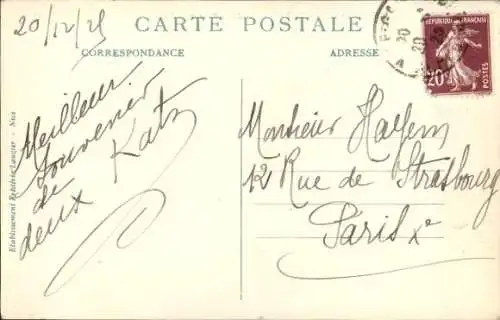 20/12/25
CARTE POSTALE
CORRESPONDANCE
ADRESSE
RÉPUBLIQUE FRANÇAISE
20
20
20c
Meilleur
souvenir
de
deux Katz
Monsieur
12 Rue de Strasbourg
Paris Xe
Nice